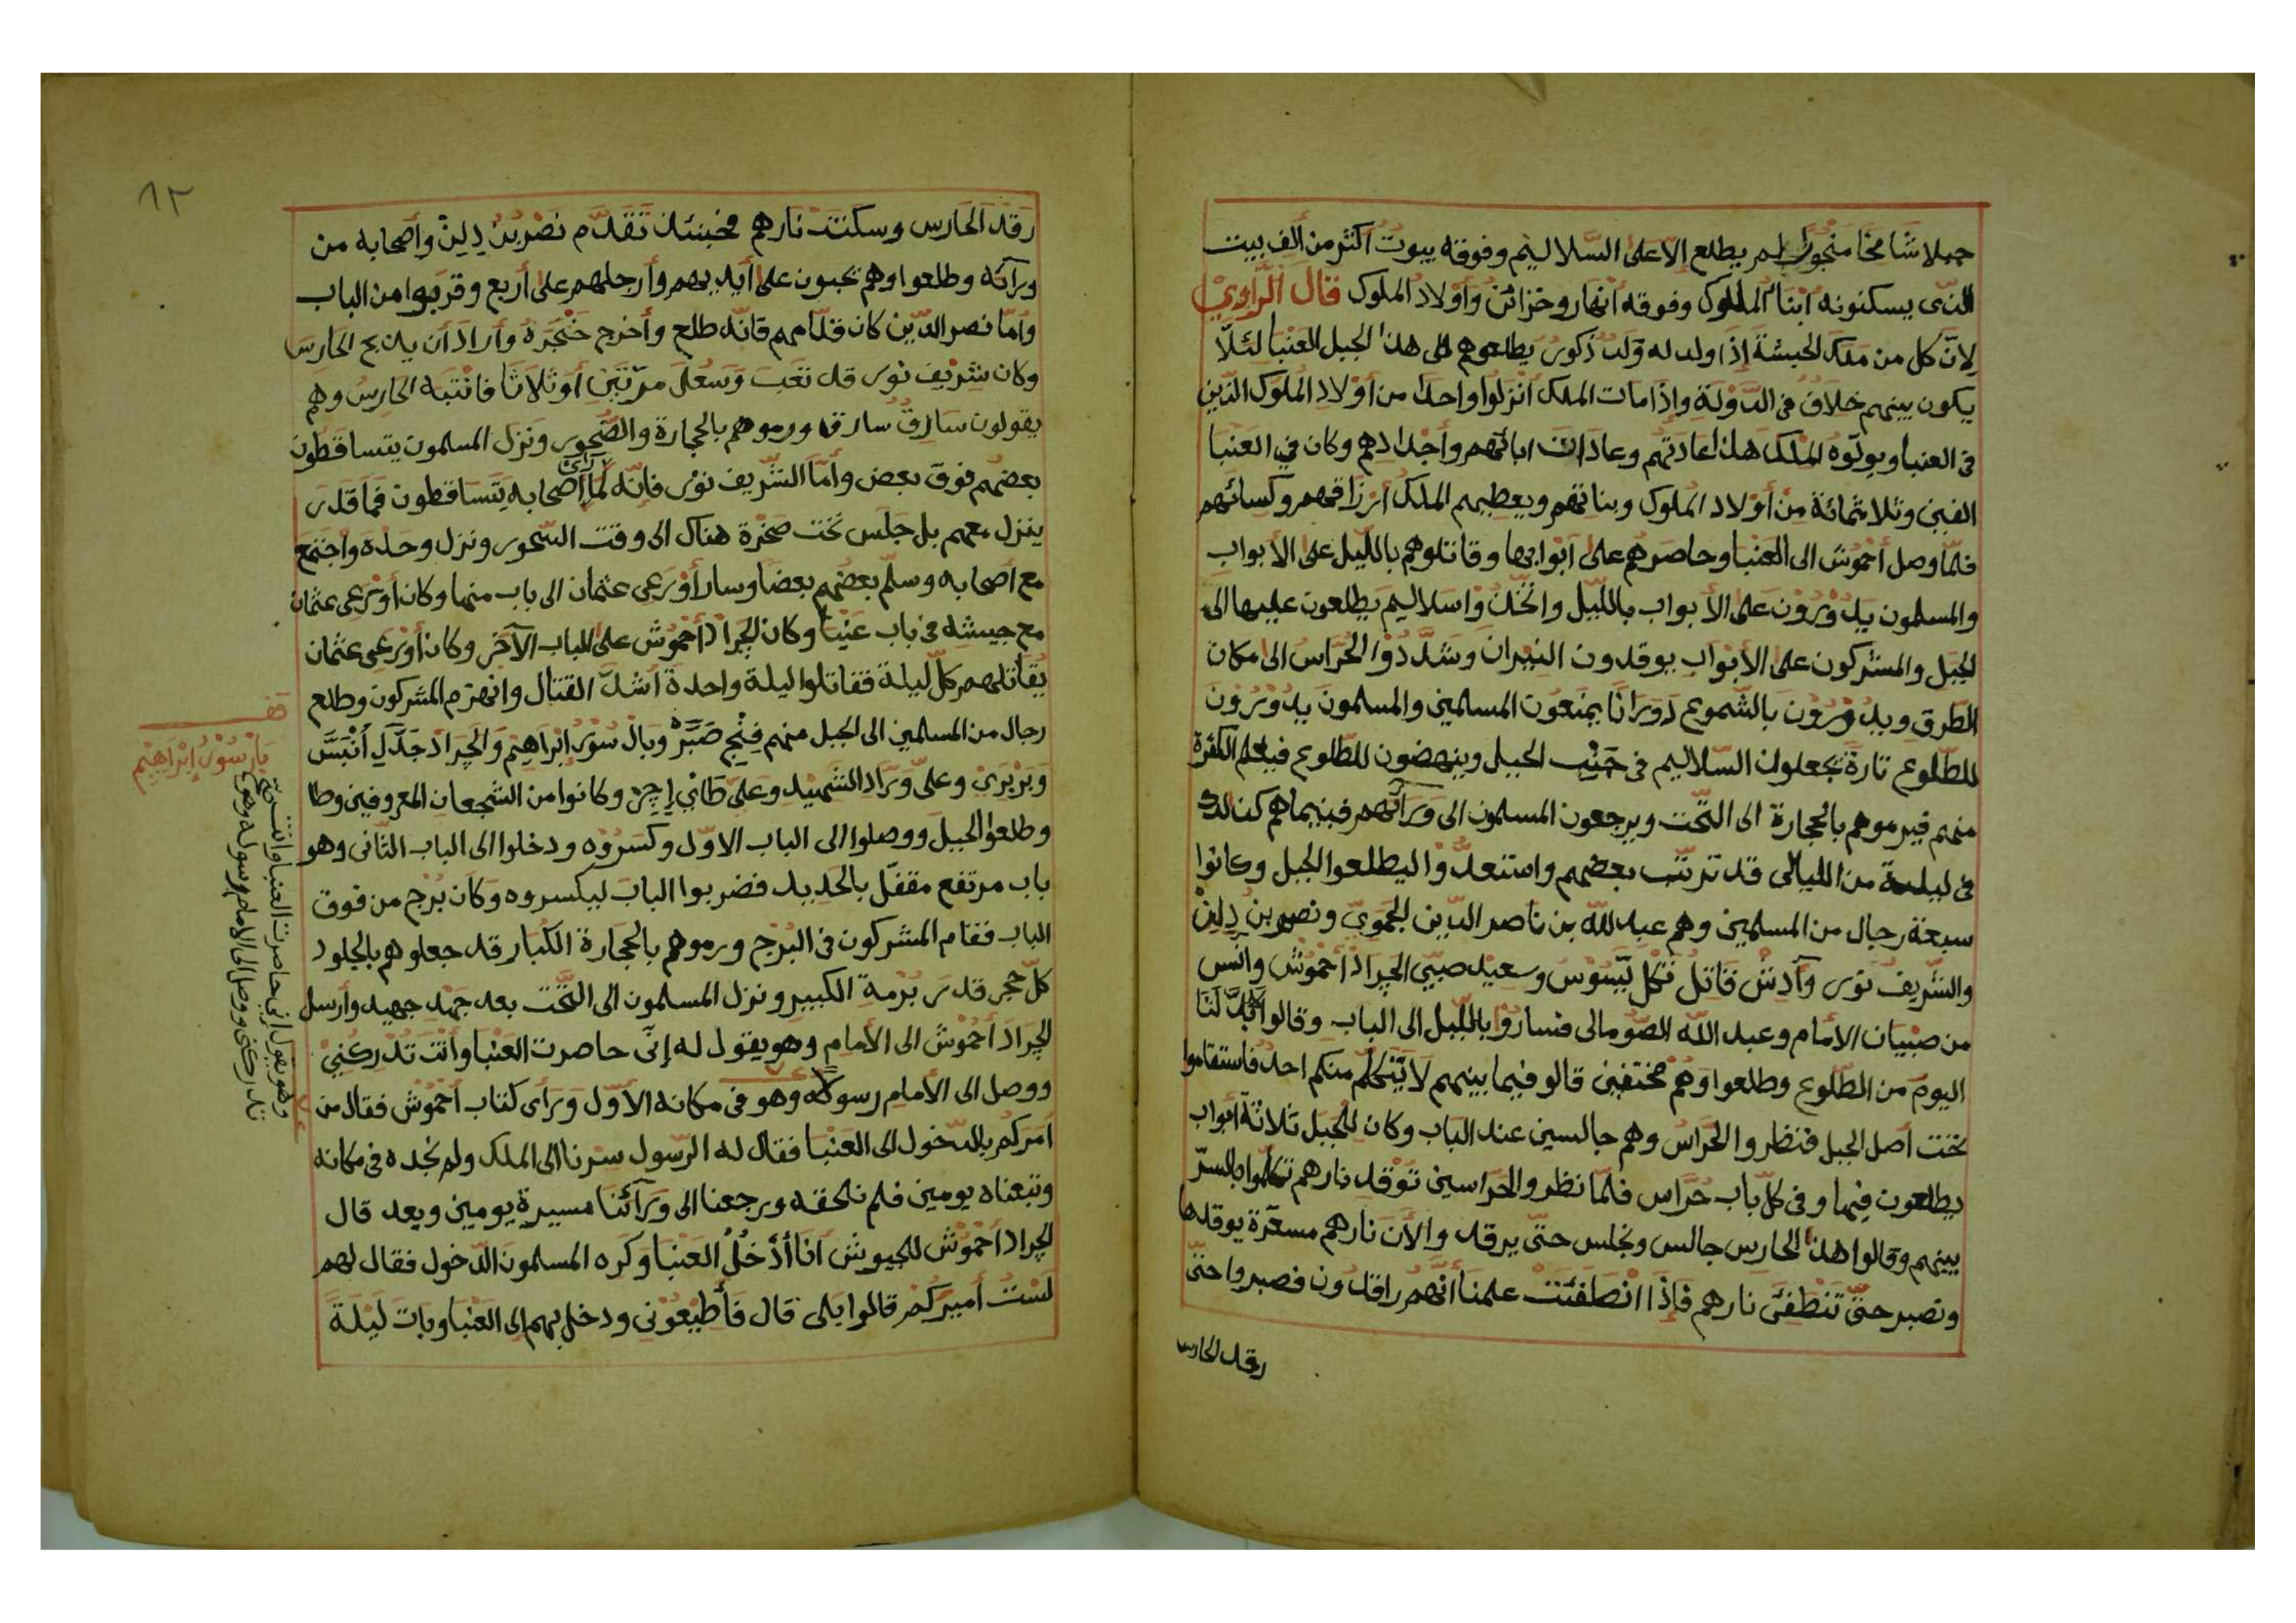 جبلا شامخا منجورا لم يطلع الا على السلاليم وفوقه بيوت اكثر من ألف بيت
الذى يسكنونه أبناء الملوك وفوقه أنهار وخزائن وأولاد الملوك قال الراوي
لان كل من ملك الحبشة إذا ولد له ولد ذكور يطلعوهم الى هذا الجبل العنبا لئلا
يكون بينهم خلاف فى الدولة وإذا مات الملك أنزلوا واحدا من أولاد الملوك الذين
فى العنبا ويولوه الملك هذا عادتهم وعادات ابائهم وأجدادهم وكان في العنبا
الفين وثلاثمائة من أولاد الملوك وبناتهم ويعطيهم الملك أرزاقهم وكسائهم
فلما وصل أحموش الى العنبا وحاصرهم على أبوابها وقاتلوهم بالليل على الأبواب
والمسلمون يدورون على الأبواب بالليل واتخذوا سلاليم يطلعون عليها الى
الجبل والمشركون على الأبواب يوقدون النيران وشددوا الحراس الى مكان
الطرق ويدورون بالشموع دورانا يمنعون المسلمين والمسلمون يدورون
للطلوع تارة يجعلون السلاليم فى جنب الجبل وينهضون للطلوع فيعلم الكفرة
منهم فيرموهم بالحجارة الى التحت ويرجعون المسلمون الى ورآئهم فبينماهم كذالك
فى ليلة من الليالى قد ترتب بعضهم واستعدوا ليطلعوا الجبل وكانوا
سبعة رجال من المسلمين وهم عبد الله بن ناصر الدين الجموي ونصر بن دلين
والشريف نوى وآدش قاتل تكل يسوس وسعيد صبي الجراد أحموش وانس
من صبيان الأمام وعبد الله الصومالى فساروا بالليل الى الباب وقالوا لابد لنا
اليوم من الطلوع وطلعوا وهم مختفين قالو فيما بينهم لا يتكلم منكم احد فاستقاموا
تحت أصل الجبل فنظروا الحراس وهم جالسين عند الباب وكان للجبل ثلاثة أبواب
يطلعون فيها وفى كل باب حراس فلما نظروا الحراسين توقد نارهم تكلموا بالسر
بينهم وقالوا هذا الحارس جالس ونجلس حتى يرقد والأن نارهم مسعرة يوقدها
ونصبر حتى تنطفئ نارهم فإذا انطفئت علمنا أنهم راقدون فصبروا حتى
رقد الحارس
٩٢
رقد الحارس وسكنت نارهم فحينئذ تقدم نصر بن دلين وأصحابه من
ورآئه وطلعوا وهم يحبون على أيديهم وأرجلهم على أربع وقربوا من الباب
وأما نصر الدين كان قدامهم فانه طلع وأخرج خنجره وأراد أن يذبح الحارس
وكان شريف نوى قد تعب وسعل مرتين أو ثلاثا فانتبه الحارس وهم
يقولون سارق سارق ورموهم بالحجارة والصخور ونزل المسلمون يتساقطون
بعضهم فوق بعض وأما الشريف نوى فإنه لما رأى أصحابه يتساقطون فما قدر
ينزل معهم بل جلس تحت صخرة هناك الى وقت السحور ونزل وحده واجتمع
مع أصحابه وسلم بعضهم بعضا وسار أورعى عثمان الى باب منها وكان أورعى عثمان
مع جيشه فى باب عنبا وكان الجراد أحموش على الباب الآخر وكان أورعى عثمان
يقاتلهم كل ليلة فقاتلوا ليلة واحدة أشد القتال وانهزم المشركون وطلع
رجال من المسلمين الى الجبل منهم فنج صبره وبال سور إبراهيم والجراد جدل أنبس
وبربري وعلى وراد الشهيد وعلى طاني إجر وكانوا من الشجعان المعروفين وطا
وطلعوا الجبل ووصلوا الى الباب الاول وكسروه ودخلوا الى الباب الثانى وهو
باب مرتفع مقفل بالحديد فضربوا الباب ليكسروه وكان برج من فوق
الباب فقام المشركون فى البرج ورموهم بالحجارة الكبار قد جعلوهم بالجلود
كل حجر قدر برمة الكبير ونزل المسلمون الى التحت بعد جهد جهيد وأرسل
الجراد أحموش الى الأمام وهو يقول له إنى حاصرت العنبا وأنت تدركني
ووصل الى الأمام رسوله وهو فى مكانه الأول ورأى كتاب أحموش فقال من
أمركم بالدخول الى العنبا فقال له الرسول سرنا الى الملك ولم نجده فى مكانه
وتبعناه يومين فلم نلحقه ورجعنا الى ورآئنا مسيرة يومين وبعد قال
الجراد أحموش للجيوش أنا أدخل العنبا وكره المسلمون الدخول فقال لهم
لست أميركم قالوا بلى قال فأطيعوني ودخل بهم الى العنبا وبات ليلة
بار سور إبراهيم
وهو يقول انى حاصرت العنبا وانت
تدركنى ووصل الى الامام رسوله وهو